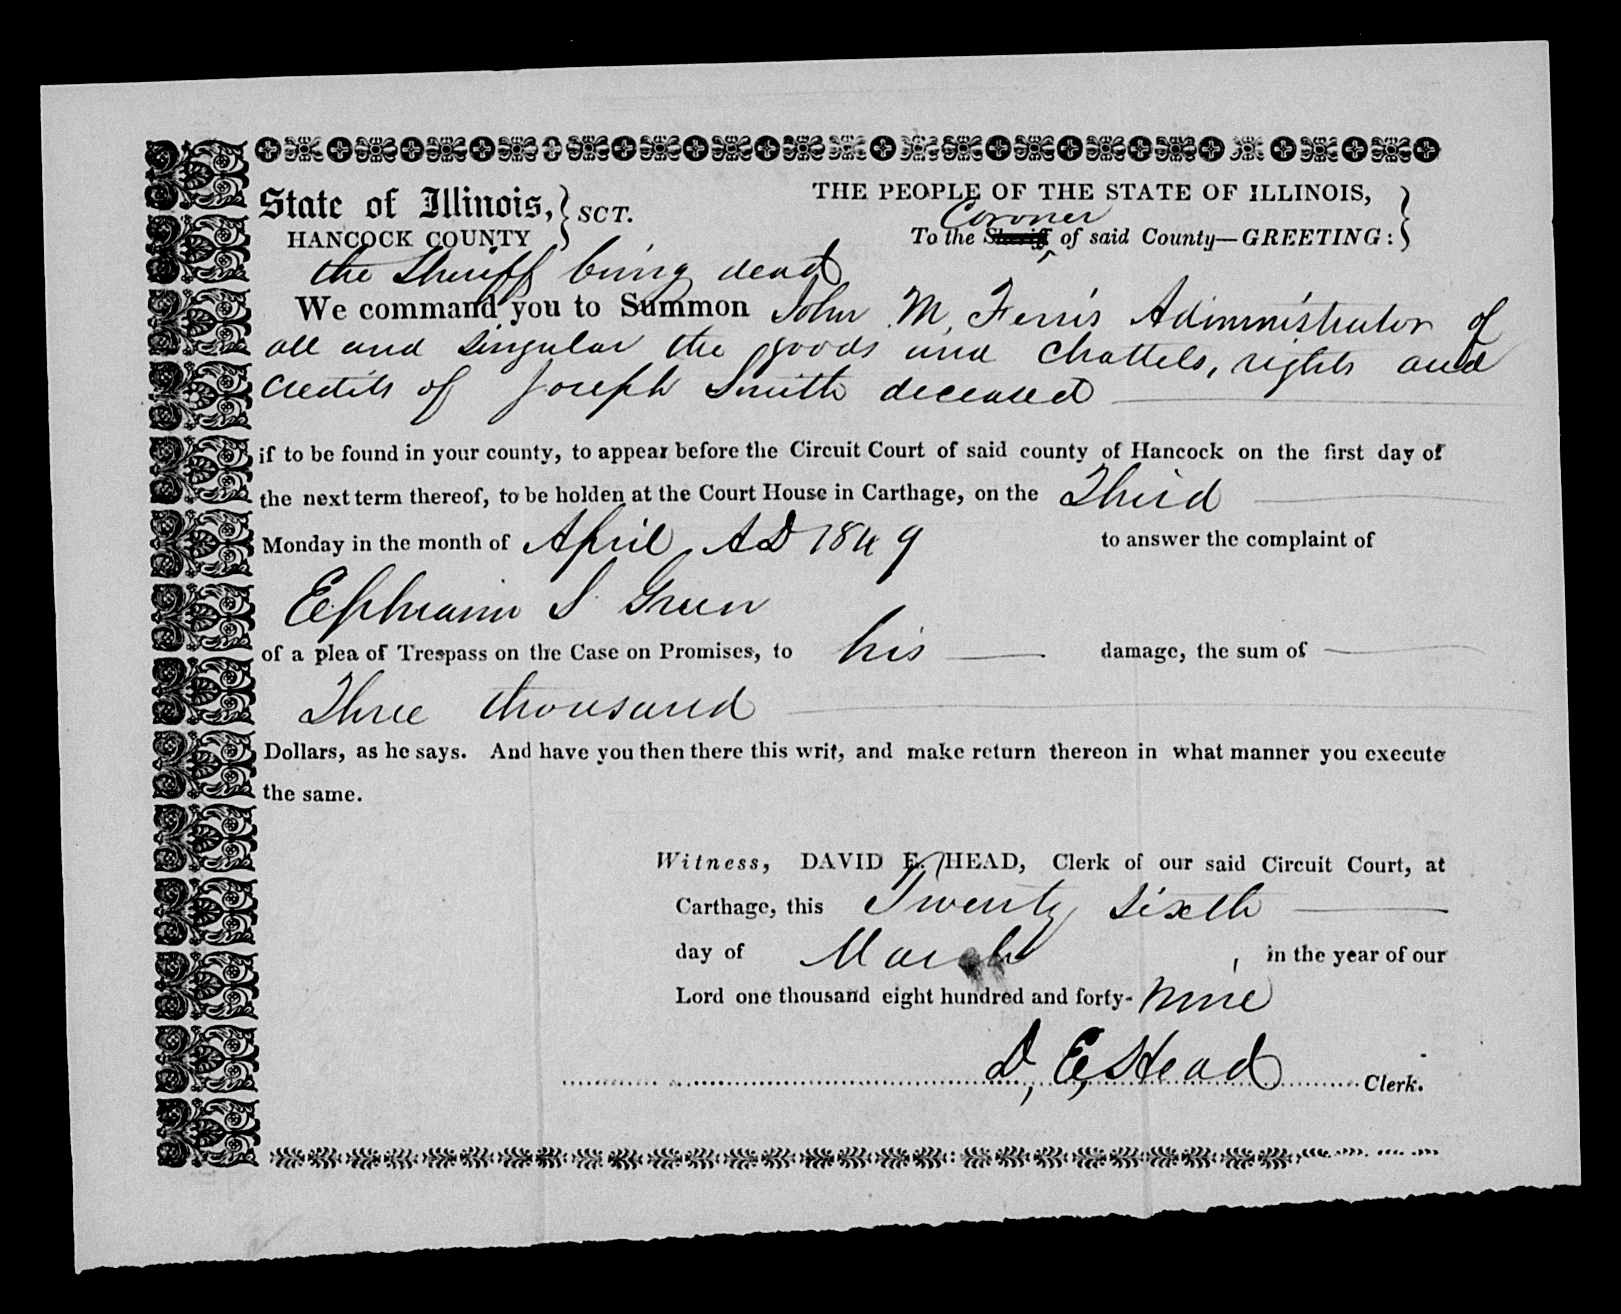 State of Illinois, } SCT.
HANCOCK COUNTY
THE PEOPLE OF THE STATE OF ILLINOIS,
Coroner
To the Sheriff of said County—GREETING:
the Sheriff being dead
We command you to Summon John M. Ferris Adimmistrator of
all and Singular the goods and Chattels, rights and
Credits of Joseph Smith deceased
if to be found in your county, to appear before the Circuit Court of said county of Hancock on the first day of
the next term thereof, to be holden at the Court House in Carthage, on the Third
Monday in the month of April AD 1849 to answer the complaint of
Ephraim S Green
of a plea of Trespass on the Case on Promises, to his damage, the sum of
Three thousand
Dollars, as he says. And have you then there this writ, and make return thereon in what manner you execute
the same.
Witness, DAVID E. HEAD, Clerk of our said Circuit Court, at
Carthage, this Twenty Sixth
day of March, in the year of our
Lord one thousand eight hundred and forty-nine
D, E, Head Clerk.